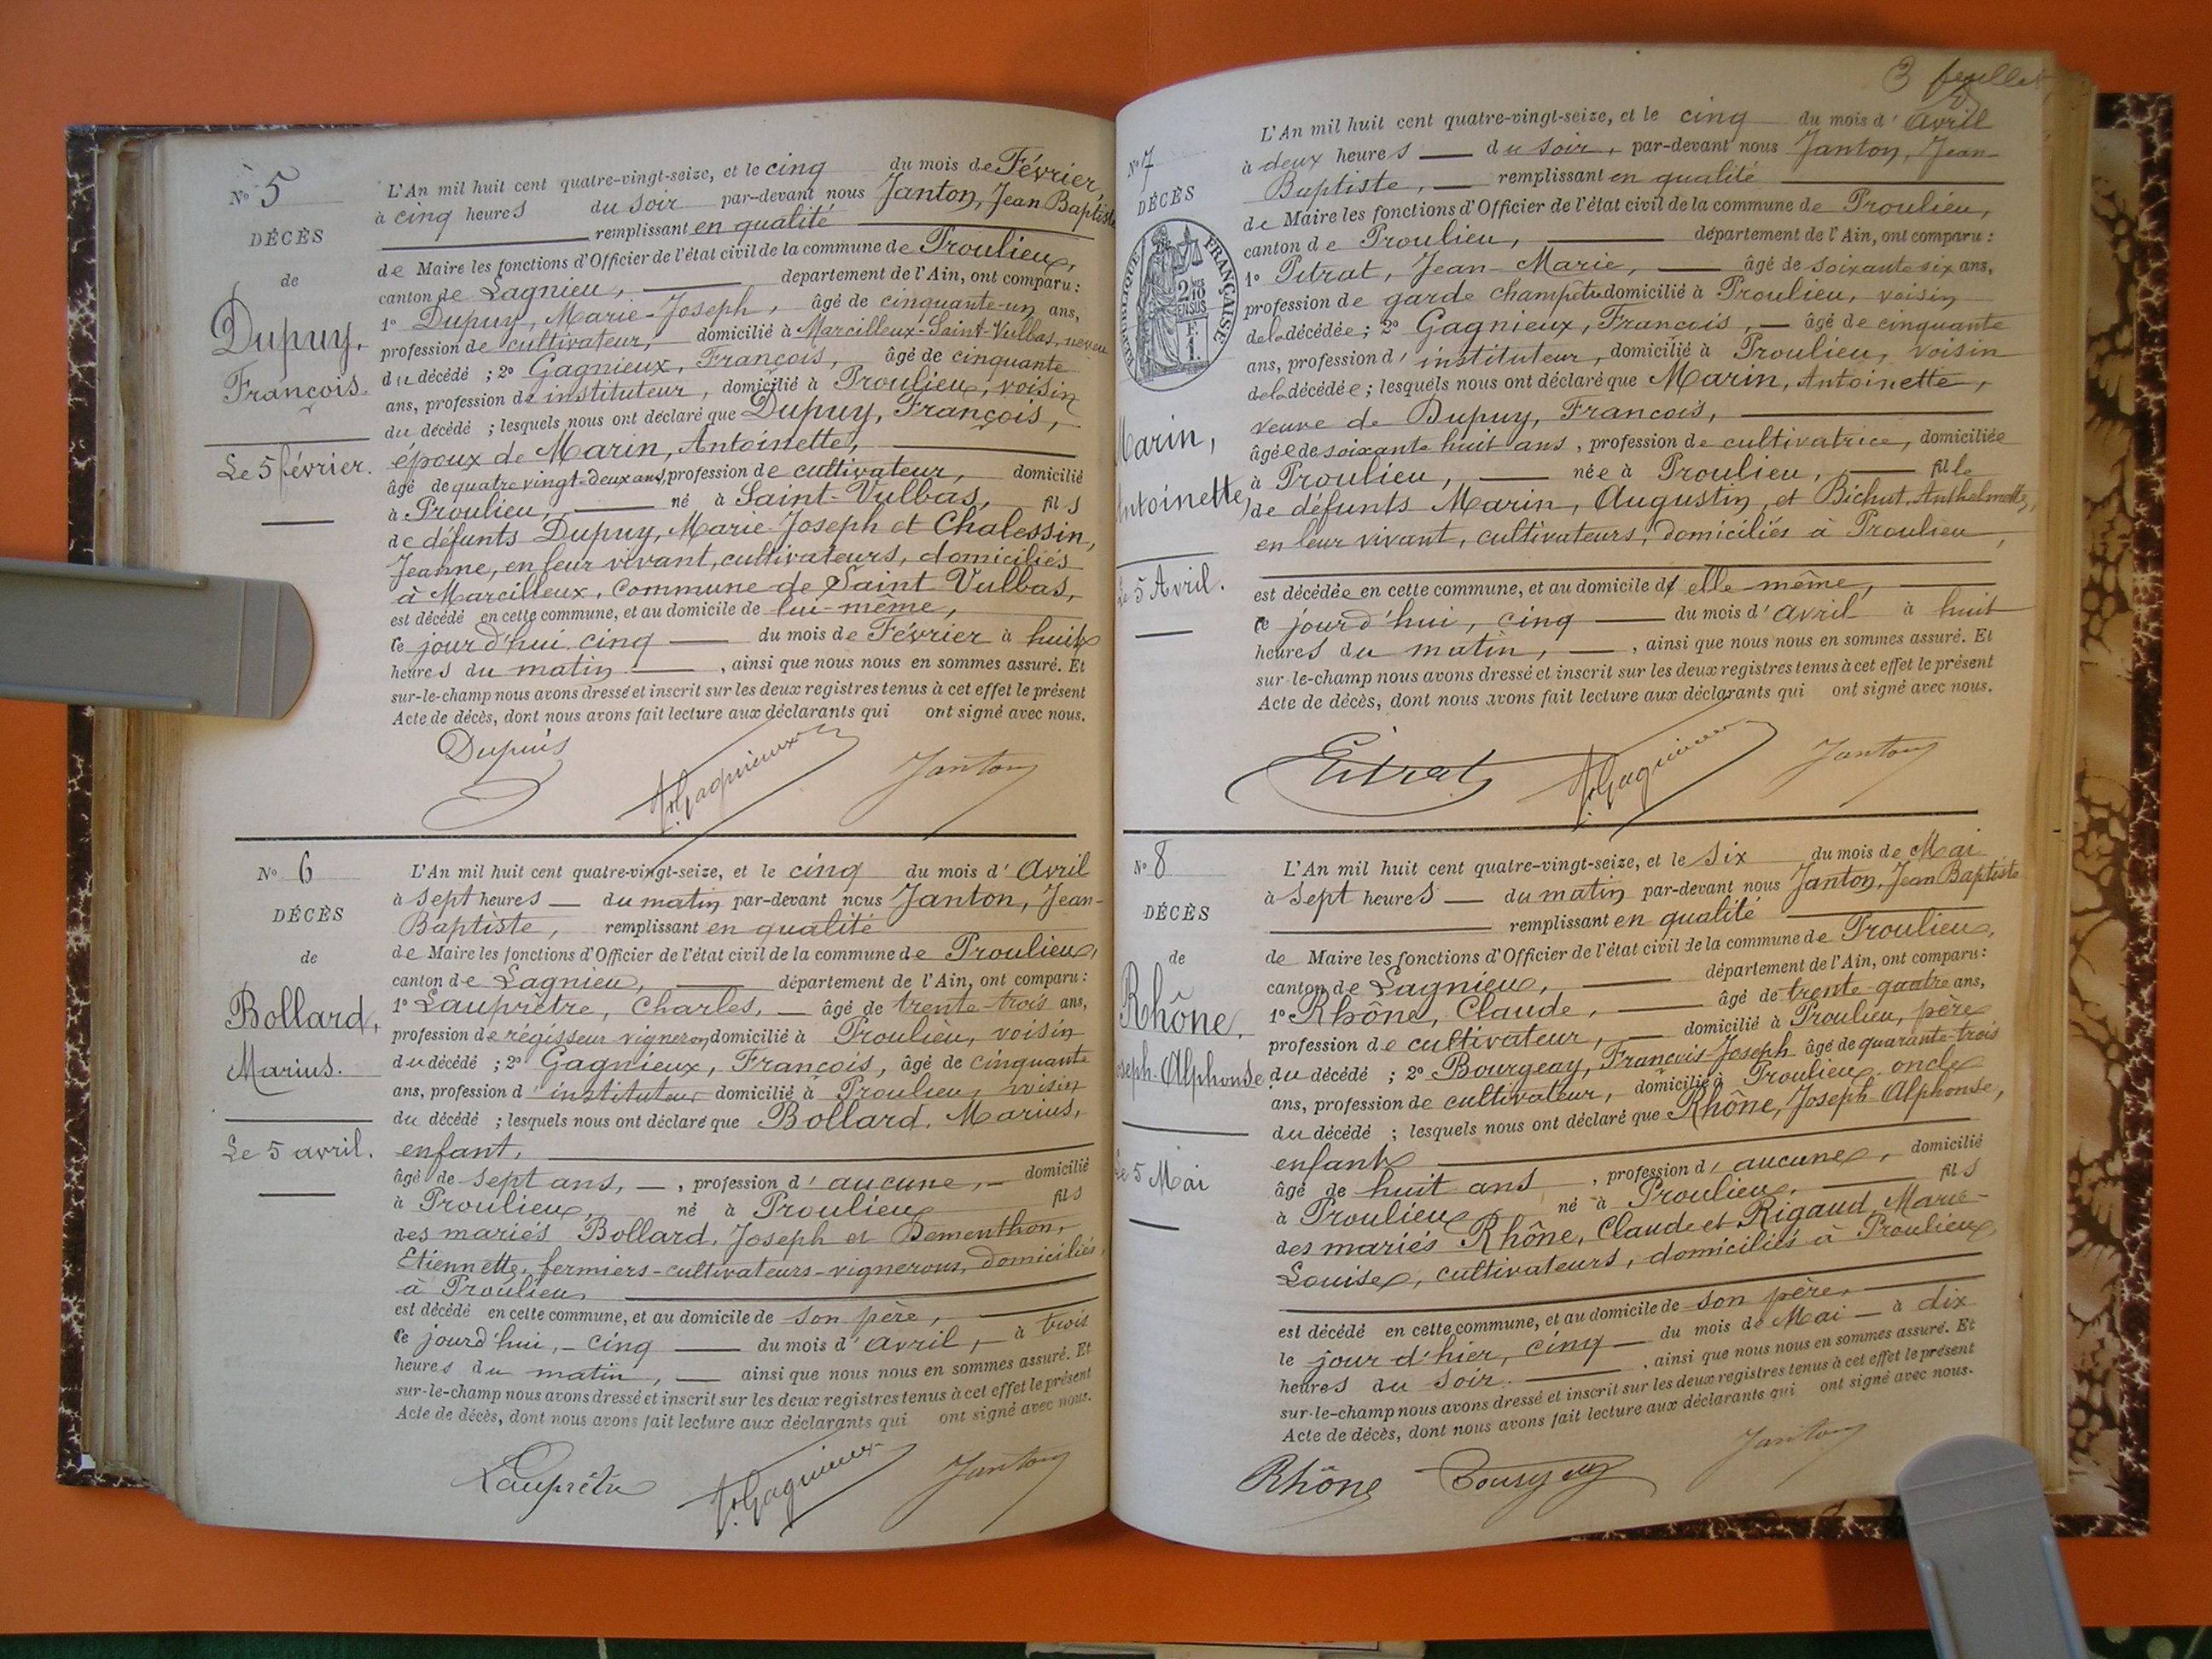 N° 5
DÉCÈS
de
Dupuy,
François.
Le 5 février.
L'An mil huit cent quatre-vingt-seize, et le cinq du mois de Février,
à cinq heures du soir par-devant nous Janton, Jean Baptiste
remplissant en qualité
de Maire les fonctions d'Officier de l'état civil de la commune de Proulieu,
canton de Lagnieu, département de l'Ain, ont comparu :
1° Dupuy, Marie-Joseph, âgé de cinquante-un ans,
profession de cultivateur, domicilié à Marcilleux-Saint-Vulbas, neveu
du décédé ; 2° Gagnieux, François, âgé de cinquante
ans, profession d'instituteur, domicilié à Proulieu, voisin
du décédé ; lesquels nous ont déclaré que Dupuy, François,
époux de Marin, Antoinette,
âgé de quatre vingt-deux ans, profession de cultivateur, domicilié
à Proulieu, né à Saint-Vulbas, fils
de défunts Dupuy, Marie-Joseph et Chalessin,
Jeanne, en leur vivant, cultivateurs, domiciliés
à Marcilleux, commune de Saint Vulbas,
est décédé en cette commune, et au domicile de lui-même,
ce jourd'hui cinq du mois de Février à huit
heures du matin, ainsi que nous nous en sommes assuré. Et
sur-le-champ nous avons dressé et inscrit sur les deux registres tenus à cet effet le présent
Acte de décès, dont nous avons fait lecture aux déclarants qui ont signé avec nous.
Dupuis F. Gagnieux Janton
N° 6
DÉCÈS
de
Bollard,
Marius.
Le 5 avril.
L'An mil huit cent quatre-vingt-seize, et le cinq du mois d'Avril
à sept heures du matin par-devant nous Janton, Jean-
Baptiste, remplissant en qualité
de Maire les fonctions d'Officier de l'état civil de la commune de Proulieu,
canton de Lagnieu, département de l'Ain, ont comparu :
1° Lauprêtre, Charles, âgé de trente-trois ans,
profession de régisseur vigneron, domicilié à Proulieu, voisin
du décédé ; 2° Gagnieux, François, âgé de cinquante
ans, profession d'instituteur domicilié à Proulieu, voisin
du décédé ; lesquels nous ont déclaré que Bollard, Marius,
enfant,
âgé de sept ans, profession d'aucune, domicilié
à Proulieu, né à Proulieu fils
des mariés Bollard, Joseph et Dementhon,
Etiennette, fermiers-cultivateurs-vignerons, domiciliés
à Proulieu,
est décédé en cette commune, et au domicile de son père,
ce jourd'hui, cinq du mois d'avril, à trois
heures du matin, ainsi que nous nous en sommes assuré. Et
sur-le-champ nous avons dressé et inscrit sur les deux registres tenus à cet effet le présent
Acte de décès, dont nous avons fait lecture aux déclarants qui ont signé avec nous.
Lauprêtre F. Gagnieux Janton
3 feuillet
N° 7
DÉCÈS
RÉPUBLIQUE FRANÇAISE
Marin,
Antoinette,
Le 5 Avril.
L'An mil huit cent quatre-vingt-seize, et le cinq du mois d'Avril
à deux heures du soir, par-devant nous Janton, Jean-
Baptiste, remplissant en qualité
de Maire les fonctions d'Officier de l'état civil de la commune de Proulieu,
canton de Proulieu, département de l'Ain, ont comparu :
1° Pitrat, Jean-Marie, âgé de soixante six ans,
profession de garde champêtre domicilié à Proulieu, voisin
de la décédée ; 2° Gagnieux, François, âgé de cinquante
ans, profession d'instituteur, domicilié à Proulieu, voisin
de la décédée ; lesquels nous ont déclaré que Marin, Antoinette,
veuve de Dupuy, François,
âgée de soixante huit ans, profession de cultivatrice, domiciliée
à Proulieu, née à Proulieu, fille
de défunts Marin, Augustin, et Bichut, Anthelmette,
en leur vivant, cultivateurs, domiciliés à Proulieu,
est décédée en cette commune, et au domicile d'elle-même,
ce jourd'hui, cinq du mois d'avril à huit
heures du matin, ainsi que nous nous en sommes assuré. Et
sur-le-champ nous avons dressé et inscrit sur les deux registres tenus à cet effet le présent
Acte de décès, dont nous avons fait lecture aux déclarants qui ont signé avec nous.
Pitrat F. Gagnieux Janton
N° 8
DÉCÈS
de
Rhône,
Joseph-Alphonse
Le 5 Mai
L'An mil huit cent quatre-vingt-seize, et le six du mois de Mai
à sept heures du matin par-devant nous Janton, Jean Baptiste
remplissant en qualité
de Maire les fonctions d'Officier de l'état civil de la commune de Proulieu,
canton de Lagnieu, département de l'Ain, ont comparu :
1° Rhône, Claude, âgé de trente-quatre ans,
profession de cultivateur, domicilié à Proulieu, père
du décédé ; 2° Bourgeay, François-Joseph âgé de quarante-trois
ans, profession de cultivateur, domicilié à Proulieu, oncle
du décédé ; lesquels nous ont déclaré que Rhône, Joseph Alphonse,
enfant
âgé de huit ans, profession d'aucune, domicilié
à Proulieu né à Proulieu, fils
des mariés Rhône, Claude et Rigaud, Marie-
Louise, cultivateurs, domiciliés à Proulieu,
est décédé en cette commune, et au domicile de son père,
le jour d'hier, cinq du mois de Mai à dix
heures du soir, ainsi que nous nous en sommes assuré. Et
sur-le-champ nous avons dressé et inscrit sur les deux registres tenus à cet effet le présent
Acte de décès, dont nous avons fait lecture aux déclarants qui ont signé avec nous.
Rhône Bourgeay Janton